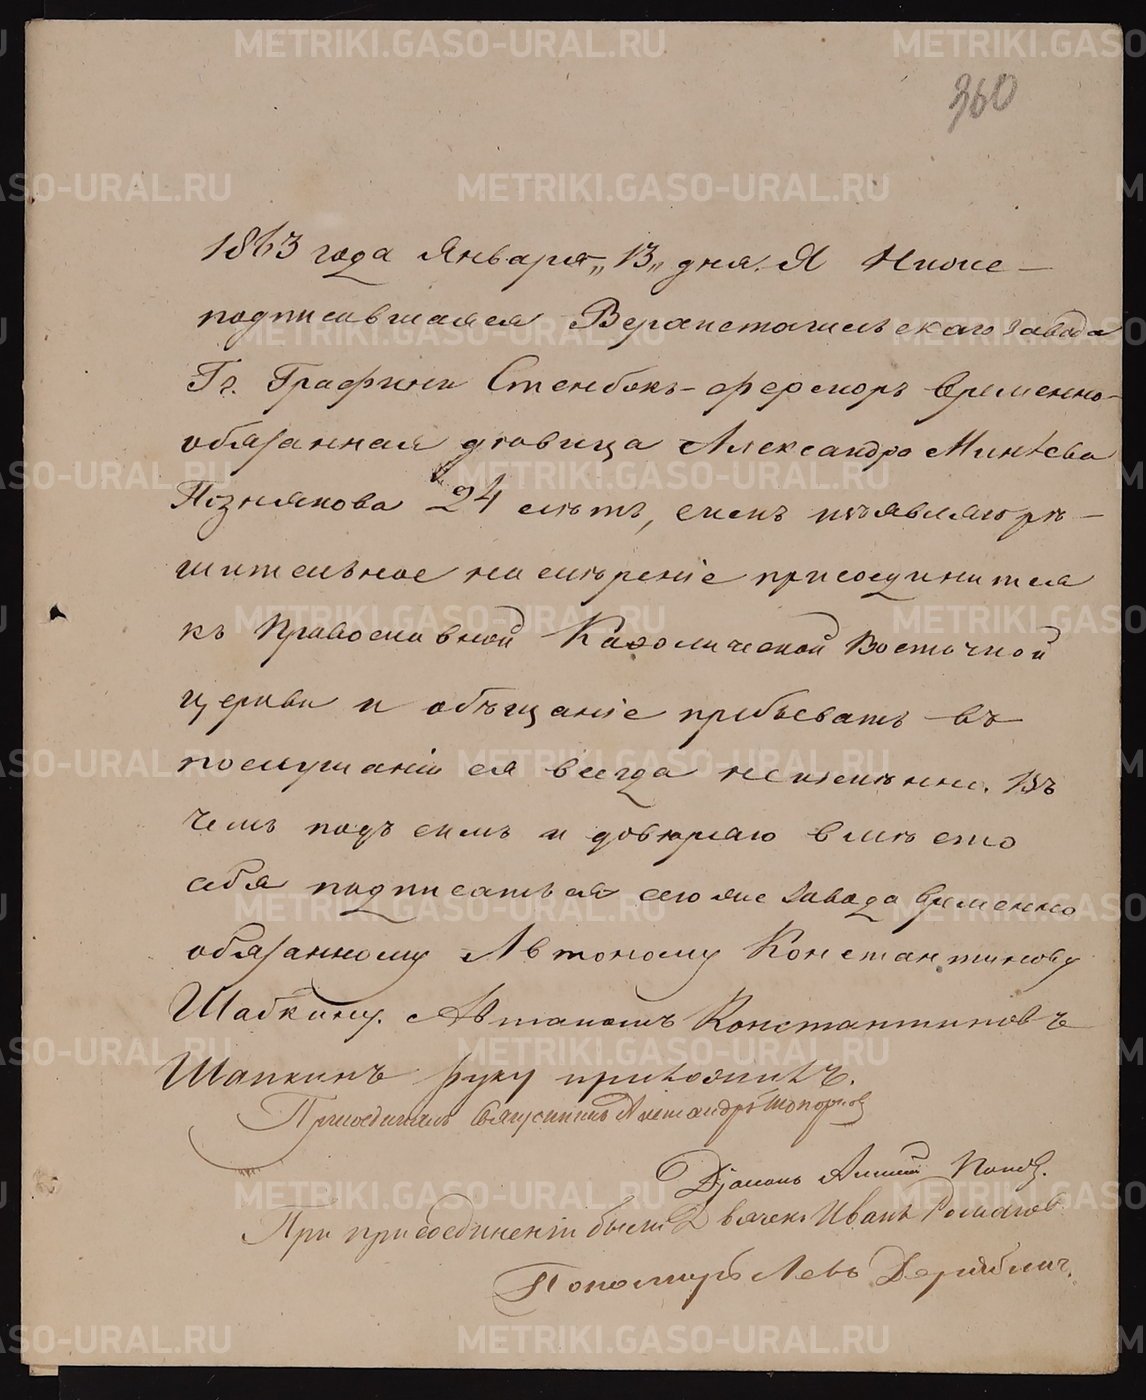 360
1863 года Января „13„ дня. Я Ниже-
подписавшаяся Верхисетскаго завода
Гр. Графини Стенбокъ-ферморъ временно-
обязанная дѣвица Александра Минѣева
Познякова 24 лѣтъ, симъ изъявляю рѣ-
шительное намѣреніе присоединится
къ Православной Каѳолической Восточной
церкви и обѣщаніе пребывать въ
послушаніи ея всегда неизмѣнно. Въ
чемъ подъ симъ и довѣряю вмѣсто
себя подписаться сего же завода временно
обязанному Автоному Константинову
Шабкину. Автаномъ Константиновъ
Шапкинъ руку приложилъ.
Присоединялъ Священникъ Александръ Топорковъ
Діаконъ Алексій Поповъ.
При присоединеніи были Дьячекъ Иванъ Романовъ
Пономарь Левъ Дерябинъ.